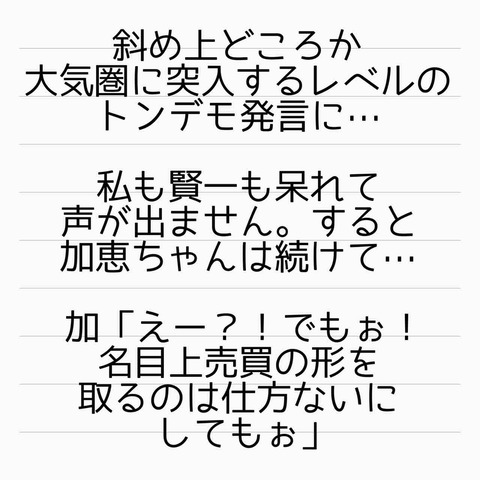 斜め上どころか
大気圏に突入するレベルの
トンデモ発言に…
私も賢一も呆れて
声が出ません。すると
加恵ちゃんは続けて…
加「えー？！でもぉ！
名目上売買の形を
取るのは仕方ないに
してもぉ」